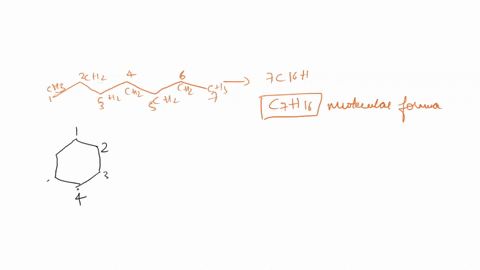 CH3 CH2 CH2 CH2 CH2 CH2 CH3
1 2 3 4 5 6 7
7C 16H
C7H16 molecular forma
1
2
3
4